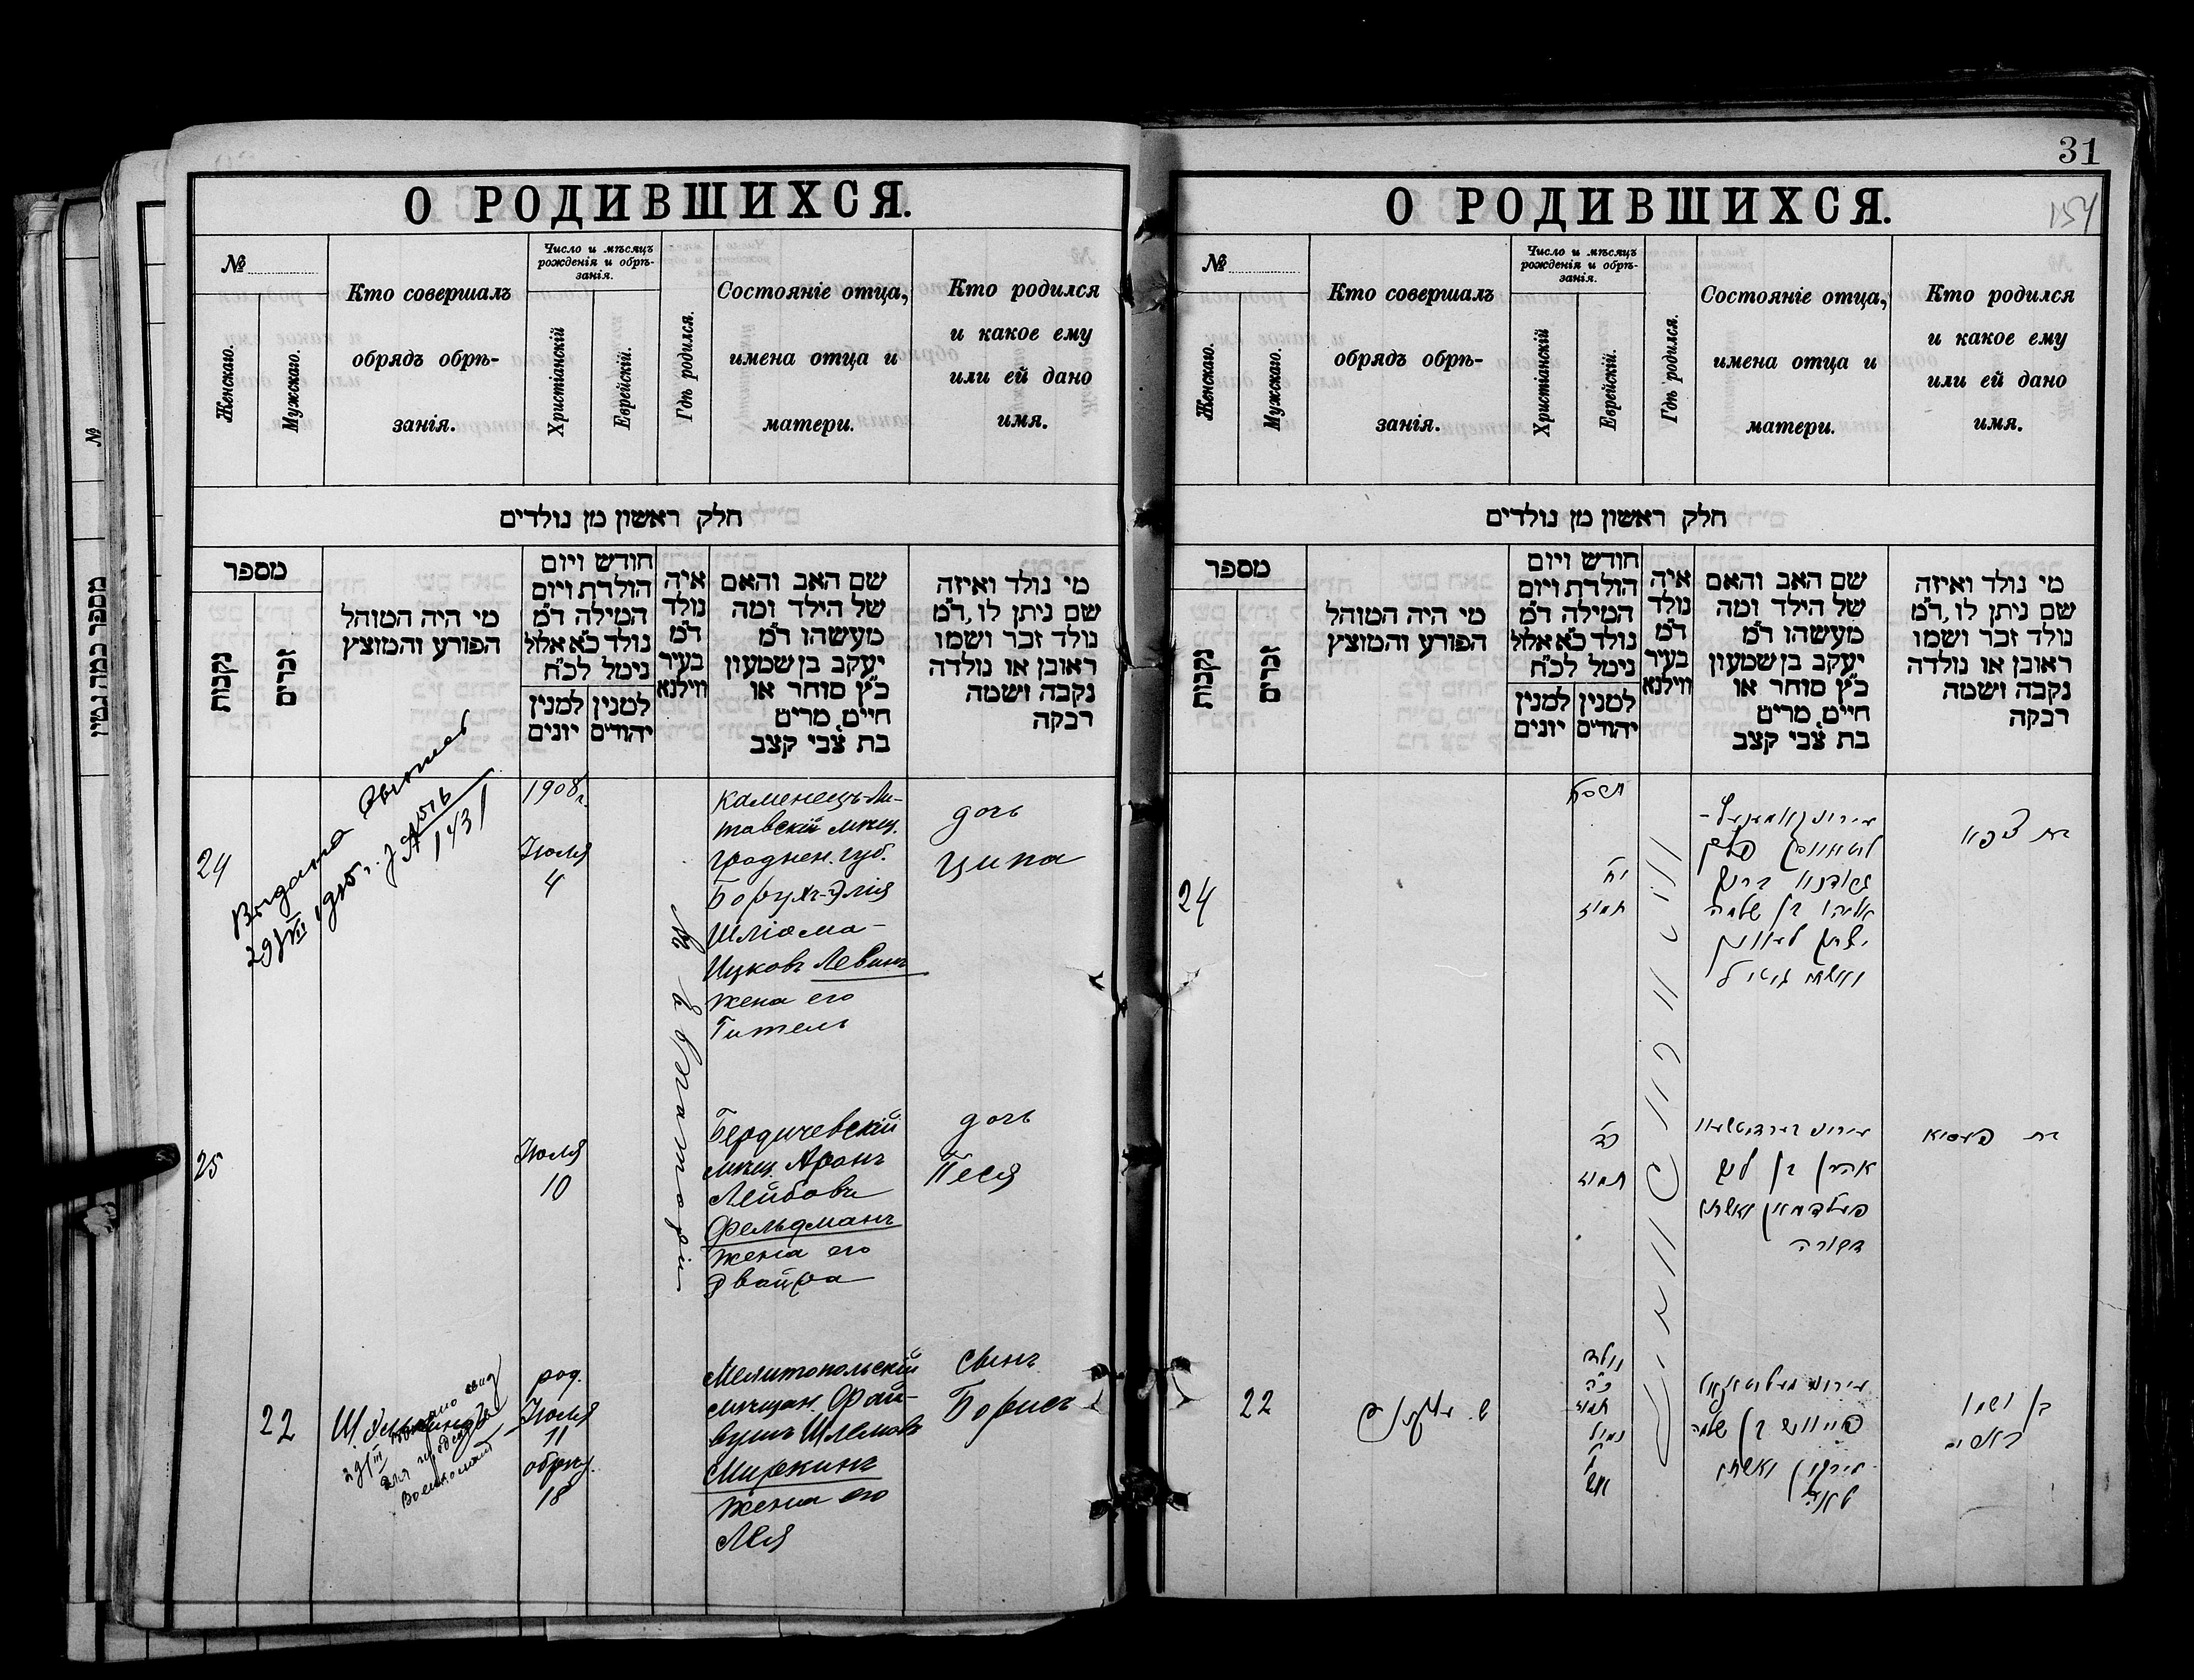 О РОДИВШИХСЯ.
№
Женскаго.
Мужскаго.
Кто совершалъ
обрядъ обрѣ-
занія.
Число и мѣсяцъ
рожденія и обрѣ-
занія.
Христіанскій
Еврейскій.
Гдѣ родился.
Состояніе отца,
имена отца и
матери.
Кто родился
и какое ему
или ей дано
имя.
חלק ראשון מן נולדים
מספר
נקבות
זכרים
מי היה המוהל
הפורע והמוצץ
חודש ויום
הולדת ויום
המילה ד"מ
נולד כ"א אלול
נימל לכ"ח
למנין
יונים
למנין
יהודים
איה
נולד
ד"מ
בעיר
ווילנא
שם האב והאם
של הילד ומה
מעשהו ד"מ
יעקב בן שמעון
כ"ץ סוחר או
חיים, מרים
בת צבי קצב
מי נולד ואיזה
שם ניתן לו, ד"מ
נולד זכר ושמו
ראובן או נולדה
נקבה ושמה
רבקה
24
1908 г.
Іюля
4
Каменецъ-Ли-
товскій мѣщ.
Гроднен. губ.
Борухъ-Элія
Шліома-
Ицковъ Левинъ
жена его
Гитель
дочь
Ципа
Въ г. Евпаторіи
25
Іюля
10
Бердичевскій
мѣщ. Аронъ
Лейбовъ
Фельдманъ
жена его
Двойра
дочь
Песя
22
род.
Іюля
11
обрѣз.
18
Мелитопольскій
мѣщан. Фай-
вушъ Шлемовъ
Миркинъ
жена его
Лея
сынъ
Борисъ
31
154
О РОДИВШИХСЯ.
№
Женскаго.
Мужскаго.
Кто совершалъ
обрядъ обрѣ-
занія.
Число и мѣсяцъ
рожденія и обрѣ-
занія.
Христіанскій
Еврейскій.
Гдѣ родился.
Состояніе отца,
имена отца и
матери.
Кто родился
и какое ему
или ей дано
имя.
חלק ראשון מן נולדים
מספר
נקבות
זכרים
מי היה המוהל
הפורע והמוצץ
חודש ויום
הולדת ויום
המילה ד"מ
נולד כ"א אלול
נימל לכ"ח
למנין
יונים
למנין
יהודים
איה
נולד
ד"מ
בעיר
ווילנא
שם האב והאם
של הילד ומה
מעשהו ד"מ
יעקב בן שמעון
כ"ץ סוחר או
חיים, מרים
בת צבי קצב
מי נולד ואיזה
שם ניתן לו, ד"מ
נולד זכר ושמו
ראובן או נולדה
נקבה ושמה
רבקה
24
תרסח
יח
תמוז
אליהו בן שלמה
בת ציפא
כד
תמוז
אהרן בן ליב
פעלדמאן ואשתו
דבורה
בת פעסיא
22
נולד
כה
תמוז
נמול
פייוויש בן שלמה
מירקין ואשתו
לאה
בן ושמו